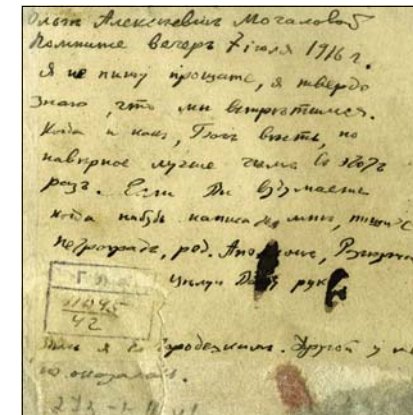 Ольгѣ Алексѣевнѣ Мочаловой
Помните вечеръ 7 iюля 1916 г.
Я не пишу прощайте, я твердо
знаю, что мы встрѣтимся.
Когда и какъ, Богъ вѣсть, но
навѣрное лучше чѣмъ въ этотъ
разъ. Если Вы вздумаете
когда нибудь написать мнѣ, пишите
Петроградъ, ред. Аполлонъ,
Цѣлую Вашу руку
11045
42
я съ Городецкимъ. Другой у
не оказалось.